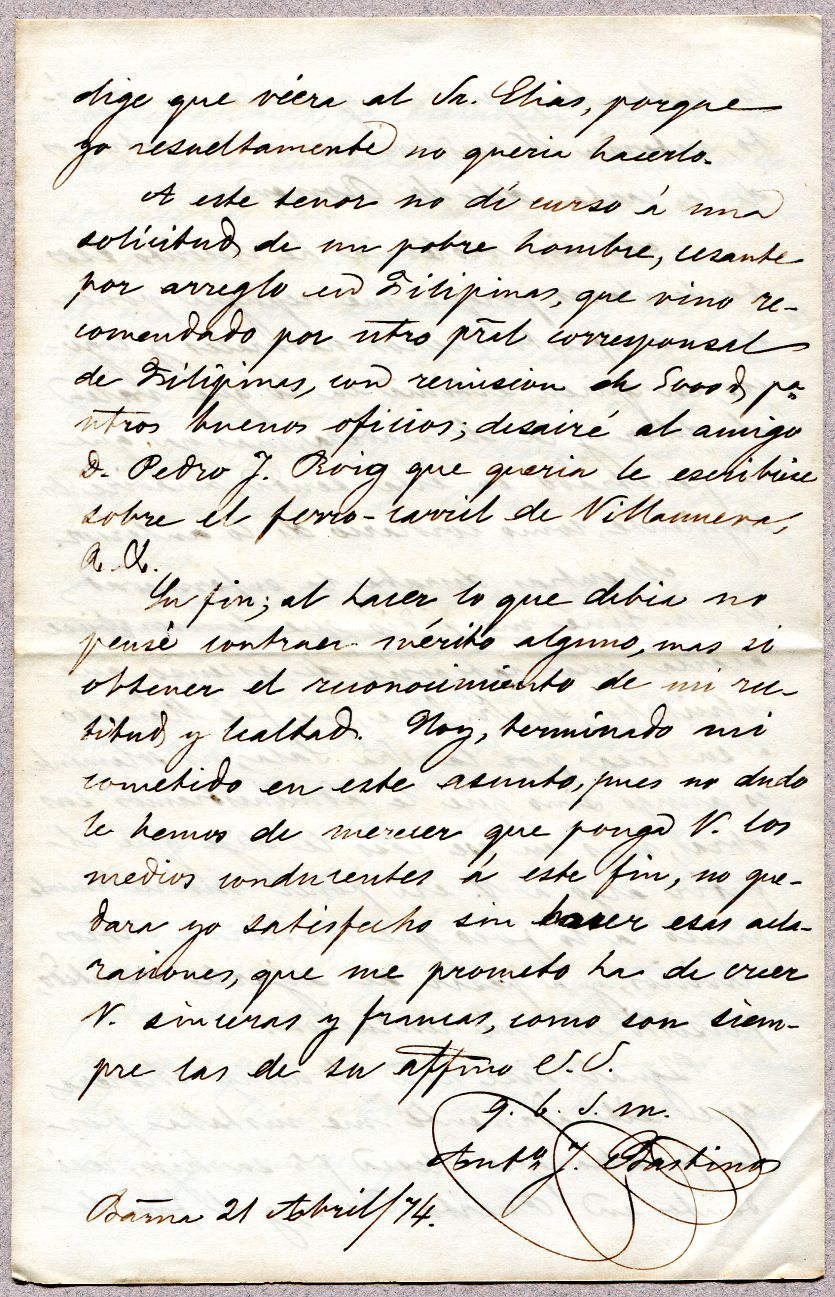 dige que viéra al Sr. Elias, porque
yo resueltamente no queria hacerlo.
A este tenor no dí curso á una
solicitud de un pobre hombre, cesante
por arreglo en Filipinas, que vino re-
comendado por ntro pral corresponsal
de Filipinas, con remision de pa
ntros buenos oficios; desairé al amigo
D. Pedro J. Roig que queria le escribiese
sobre el ferro-carril de Villanueva,
&. &.
En fin; al hacer lo que debia no
pensé contraer mérito alguno, mas si
obtener el reconocimiento de mi rec-
titud y lealtad. Hoy, terminado mi
cometido en este asunto, pues no dudo
le hemos de merecer que ponga V. los
medios conducentes á este fin, no que-
dara yo satisfecho sin hacer esas acla-
raciones, que me prometo ha de creer
V. sinceras y francas, como son siem-
pre las de su affmo S. S.
q. b. s. m.
Anto. J. Bastinos
Barna 21 Abril/74.